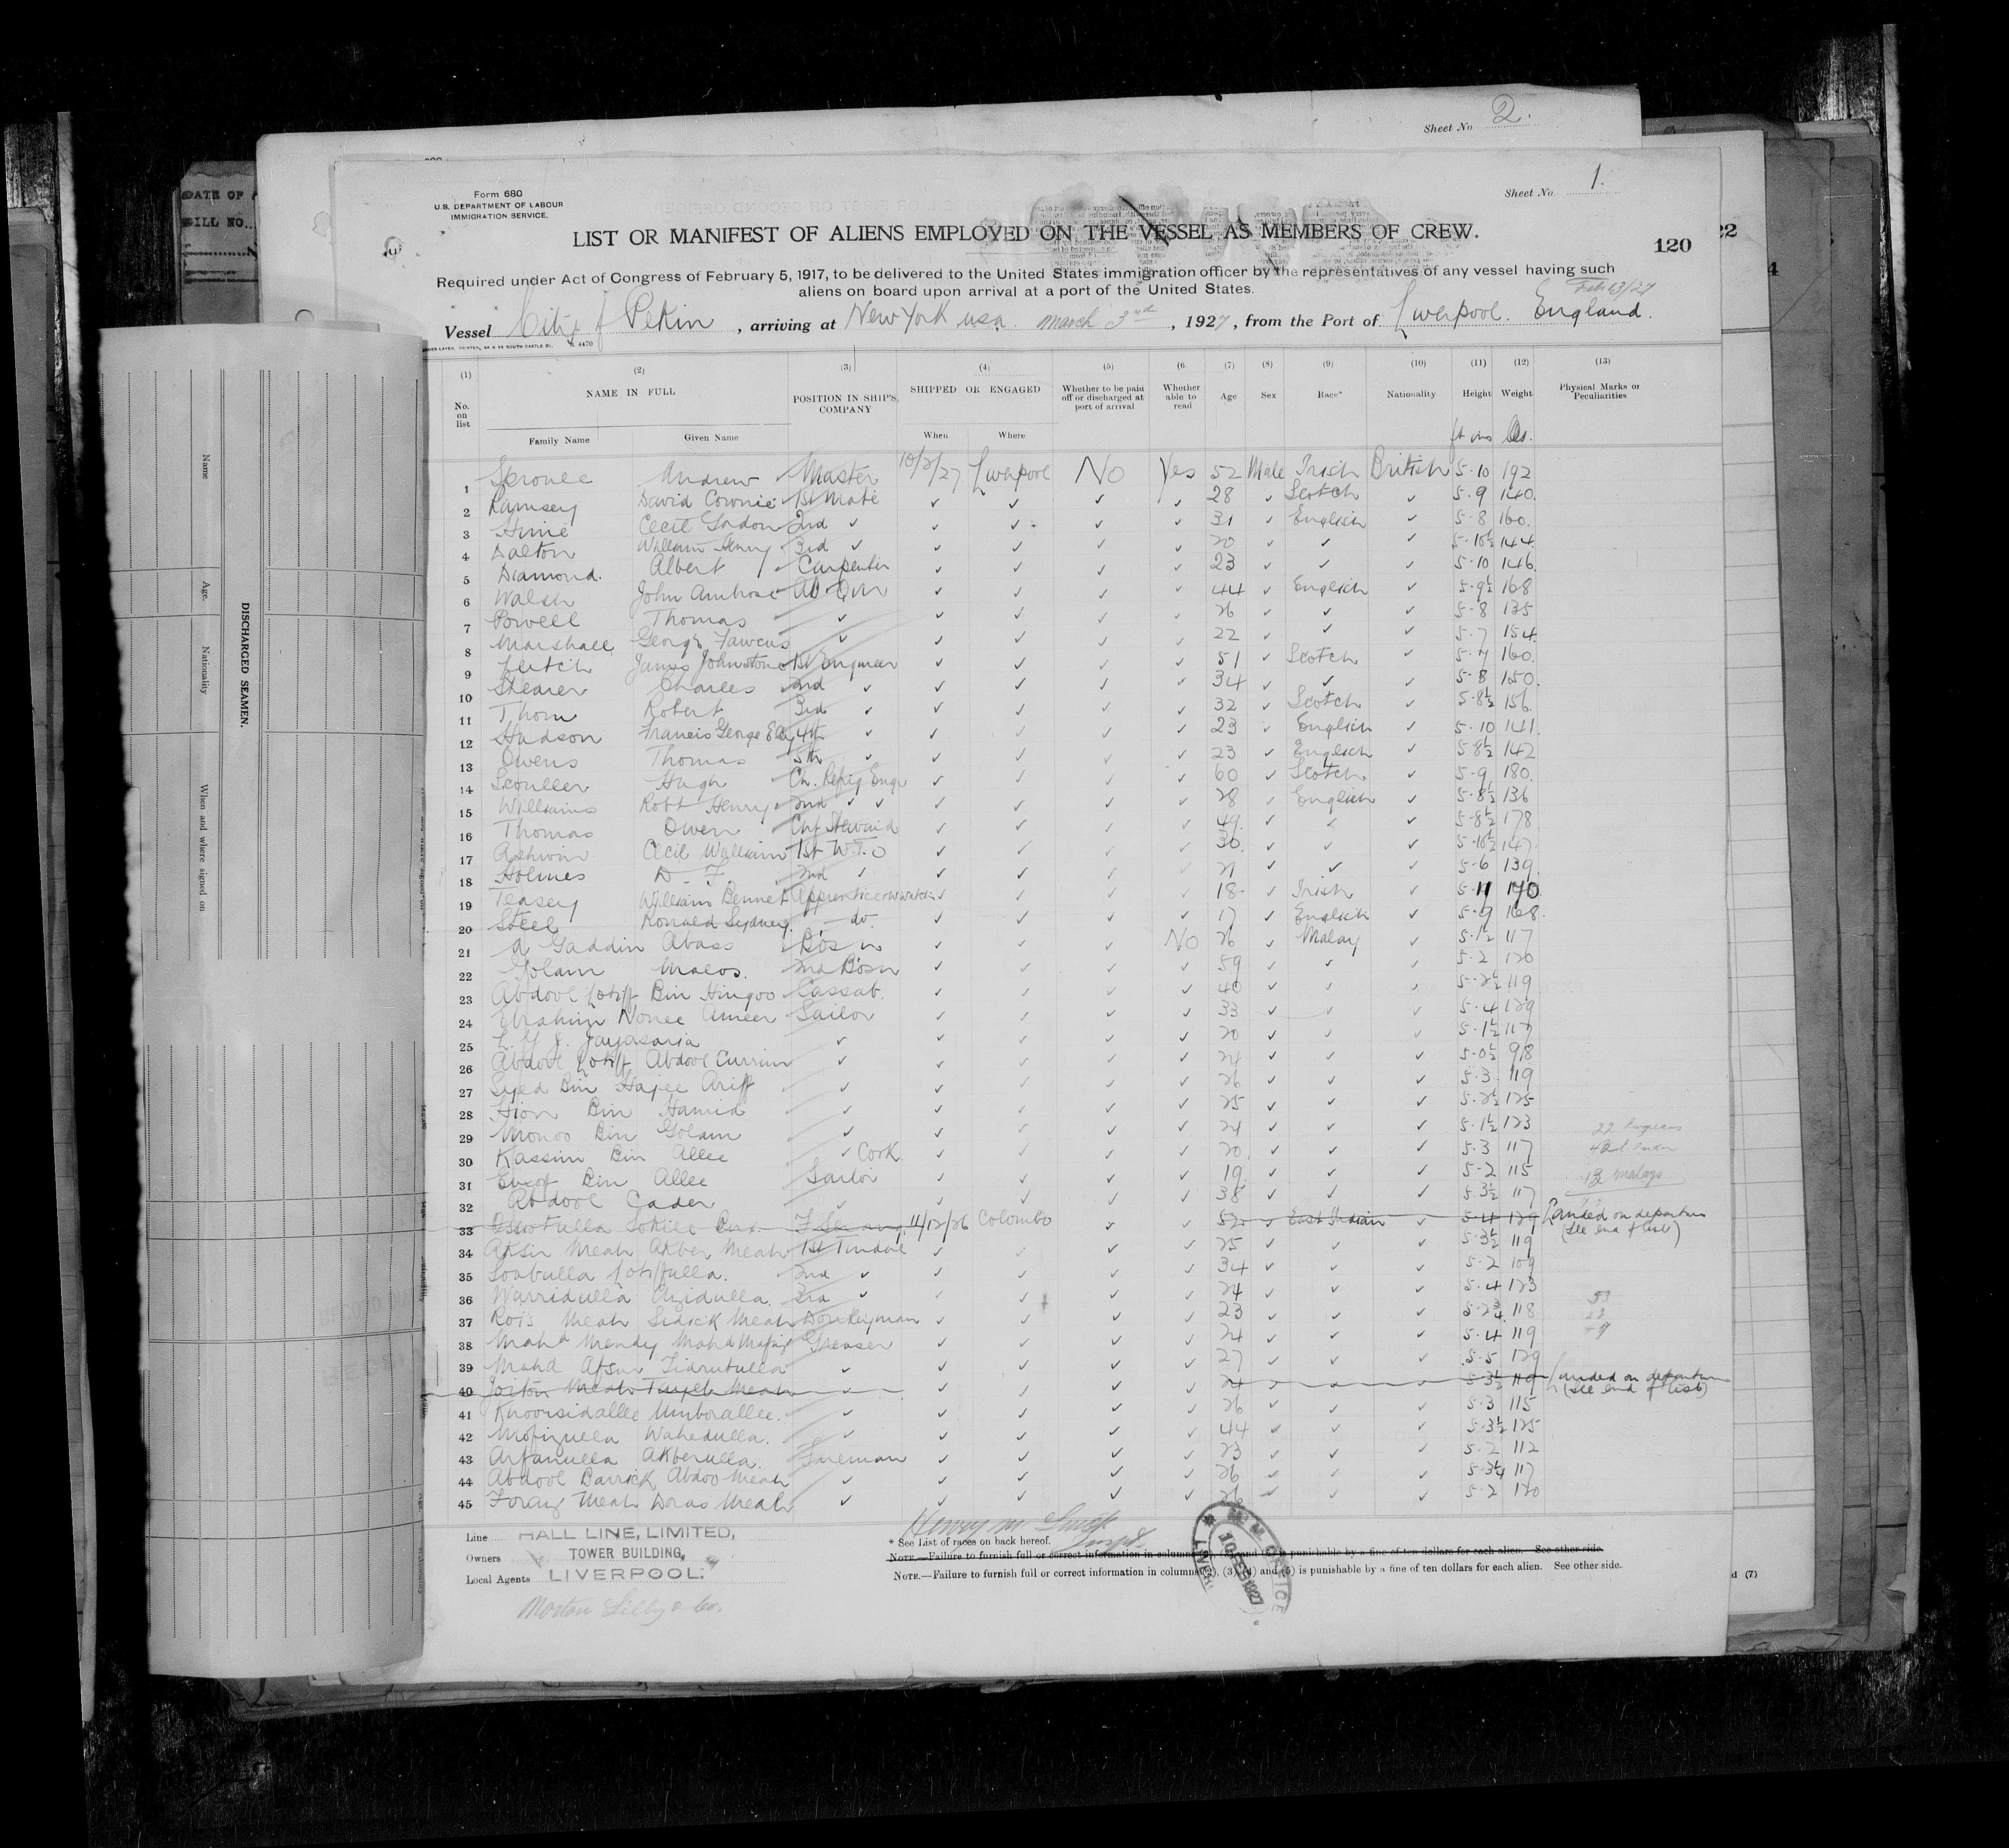 Sheet No 2.
Sheet No 1.
DATE OF
BILL NO.
Form 680
U.S. DEPARTMENT OF LABOUR
IMMIGRATION SERVICE.
LIST OR MANIFEST OF ALIENS EMPLOYED ON THE VESSEL AS MEMBERS OF CREW.
120
22
4
Required under Act of Congress of February 5, 1917, to be delivered to the United States immigration officer by the representatives of any vessel having such
aliens on board upon arrival at a port of the United States.
Vessel City of Pekin, arriving at New York usa. March 3rd, 1927, from the Port of Liverpool. England.
(1) (2) (3) (4) (5) (6 (7) (8) (9) (10) (11) (12) (13)
No. on list NAME IN FULL POSITION IN SHIP'S COMPANY SHIPPED OR ENGAGED Whether to be paid off or discharged at port of arrival Whether able to read Age Sex Race* Nationality Height Weight Physical Marks or Peculiarities
Family Name Given Name When Where ft ins lbs.
1 Sproule Andrew Master 10/2/27 Liverpool No Yes 52 Male Irish British 5-10 192
2 Ramsey David Cownie 1st Mate ✓ ✓ ✓ ✓ 28 ✓ Scotch ✓ 5-9 140
3 Hime Cecil Gordon 2nd ✓ ✓ ✓ ✓ ✓ 31 ✓ English ✓ 5-8 160.
4 Dalton William Henry 3rd ✓ ✓ ✓ ✓ ✓ 20 ✓ ✓ ✓ 5-10½ 144
5 Diamond. Albert Carpenter ✓ ✓ ✓ ✓ 23 ✓ ✓ ✓ 5-10 146
6 Walsh John Ambrose AB ✓ ✓ ✓ ✓ 44 ✓ English ✓ 5-9½ 168
7 Powell Thomas ✓ ✓ ✓ ✓ ✓ 26 ✓ ✓ ✓ 5-8 135
8 Marshall George Fawcus ✓ ✓ ✓ ✓ ✓ 22 ✓ ✓ ✓ 5-7 154
9 Leitch James Johnstone 1st Engineer ✓ ✓ ✓ ✓ 51 ✓ Scotch ✓ 5-7 160.
10 Shearer Charles 2nd ✓ ✓ ✓ ✓ ✓ 34 ✓ ✓ ✓ 5-8 150.
11 Thom Robert 3rd ✓ ✓ ✓ ✓ ✓ 32 ✓ Scotch ✓ 5-8½ 156
12 Hudson Francis George 4th ✓ ✓ ✓ ✓ ✓ 23 ✓ English ✓ 5-10 141
13 Owens Thomas 5th ✓ ✓ ✓ ✓ ✓ 23 ✓ English ✓ 5-8½ 142
14 Scouller Hugh Ch. Refrig Engr ✓ ✓ ✓ ✓ 60 ✓ Scotch ✓ 5-9 180.
15 Williams Robt Henry 2nd ✓ ✓ ✓ ✓ ✓ ✓ 28 ✓ English ✓ 5-8½ 136
16 Thomas Owen Chf Steward ✓ ✓ ✓ ✓ 49 ✓ ✓ ✓ 5-8½ 178
17 Ashwin Cecil William 1st W.T.O ✓ ✓ ✓ ✓ 30 ✓ ✓ ✓ 5-10½ 147
18 Holmes D. F. 2nd ✓ ✓ ✓ ✓ ✓ 21 ✓ ✓ ✓ 5-6 139
19 Teasey William Bennet Apprentice ✓ ✓ ✓ ✓ 18 ✓ Irish ✓ 5-11 140
20 Steel Ronald Sydney. — do. ✓ ✓ ✓ ✓ 17 ✓ English ✓ 5-9 168
21 A Gaddin Abass Bosn ✓ ✓ ✓ No 26 ✓ Malay ✓ 5-1½ 117
22 Golam Malos. 2nd Bosn ✓ ✓ ✓ ✓ 59 ✓ ✓ ✓ 5-2 120
23 Abdool Lotiff Bin Hingoo Cassab. ✓ ✓ ✓ ✓ 40 ✓ ✓ ✓ 5-2½ 119
24 Ebrahim Nonee Ameer Sailor ✓ ✓ ✓ ✓ 33 ✓ ✓ ✓ 5-4 129
25 Jayasaria ✓ ✓ ✓ ✓ ✓ 20 ✓ ✓ ✓ 5-1½ 117
26 Abdool Lotiff Abdool Currim ✓ ✓ ✓ ✓ ✓ 24 ✓ ✓ ✓ 5-0½ 98
27 Syed Bin Hajee Ariff ✓ ✓ ✓ ✓ ✓ 26 ✓ ✓ ✓ 5-3 119
28 Hion Bin Hamid ✓ ✓ ✓ ✓ ✓ 25 ✓ ✓ ✓ 5-2½ 125
29 Monoo Bin Golam ✓ ✓ ✓ ✓ ✓ 24 ✓ ✓ ✓ 5-1½ 123
30 Kassim Bin Allee ✓ Cook ✓ ✓ ✓ ✓ 20 ✓ ✓ ✓ 5-3 117
31 Bin Allee Sailor ✓ ✓ ✓ ✓ 19 ✓ ✓ ✓ 5-2 115 13 malays
32 Abdool Cader ✓ ✓ ✓ ✓ ✓ 38 ✓ ✓ ✓ 5-3½ 117
33 F Serang 11/12/26 Colombo ✓ ✓ 52 ✓ East Indian ✓ 5-4 129 Landed on departure
(See end of list)
34 Aksir Meah Akber Meah 1st Tindal ✓ ✓ ✓ ✓ 25 ✓ ✓ ✓ 5-3½ 119
35 Soabulla Lotiffulla. 2nd ✓ ✓ ✓ ✓ ✓ 34 ✓ ✓ ✓ 5-2 109
36 Warridulla Azidulla. 3rd ✓ ✓ ✓ ✓ ✓ 24 ✓ ✓ ✓ 5-4 123
37 Rois Meah Sidick Meah Donkeyman ✓ ✓ ✓ ✓ 23 ✓ ✓ ✓ 5-2¾ 118
38 Mahd Mendy Mahd Greaser ✓ ✓ ✓ ✓ 24 ✓ ✓ ✓ 5-4 119
39 Mahd Afsur Fidrutulla ✓ ✓ ✓ ✓ ✓ 27 ✓ ✓ ✓ 5-5 129
40 Meah Tayeb Meah ✓ ✓ ✓ ✓ ✓ 21 ✓ ✓ ✓ 5-3½ 119 Landed on departure
(See end of list)
41 Knoorsidallee Umborallee. ✓ ✓ ✓ ✓ ✓ 26 ✓ ✓ ✓ 5-3 115
42 Mofizulla Wahedulla. ✓ ✓ ✓ ✓ ✓ 44 ✓ ✓ ✓ 5-3½ 125
43 Arfanulla Akberulla. Fireman ✓ ✓ ✓ ✓ 23 ✓ ✓ ✓ 5-2 112
44 Abdool Barrick Abdoo Meah ✓ ✓ ✓ ✓ ✓ 26 ✓ ✓ ✓ 5-3¼ 117
45 Meah Doras Meah ✓ ✓ ✓ ✓ ✓ 26 ✓ ✓ ✓ 5-2 120
Line HALL LINE, LIMITED,
Owners TOWER BUILDING,
Local Agents LIVERPOOL.
Morton Lilly & Co.
Henry M.
* See List of races on back hereof.
NOTE.—Failure to furnish full or correct information in columns is punishable by a fine of ten dollars for each alien. See other side
NOTE.—Failure to furnish full or correct information in columns (2), (3), (4) and (5) is punishable by a fine of ten dollars for each alien. See other side.
10 FEB 1927
OFFICE
d (7)
DISCHARGED SEAMEN.
Name
Age.
Nationality
When and where signed on